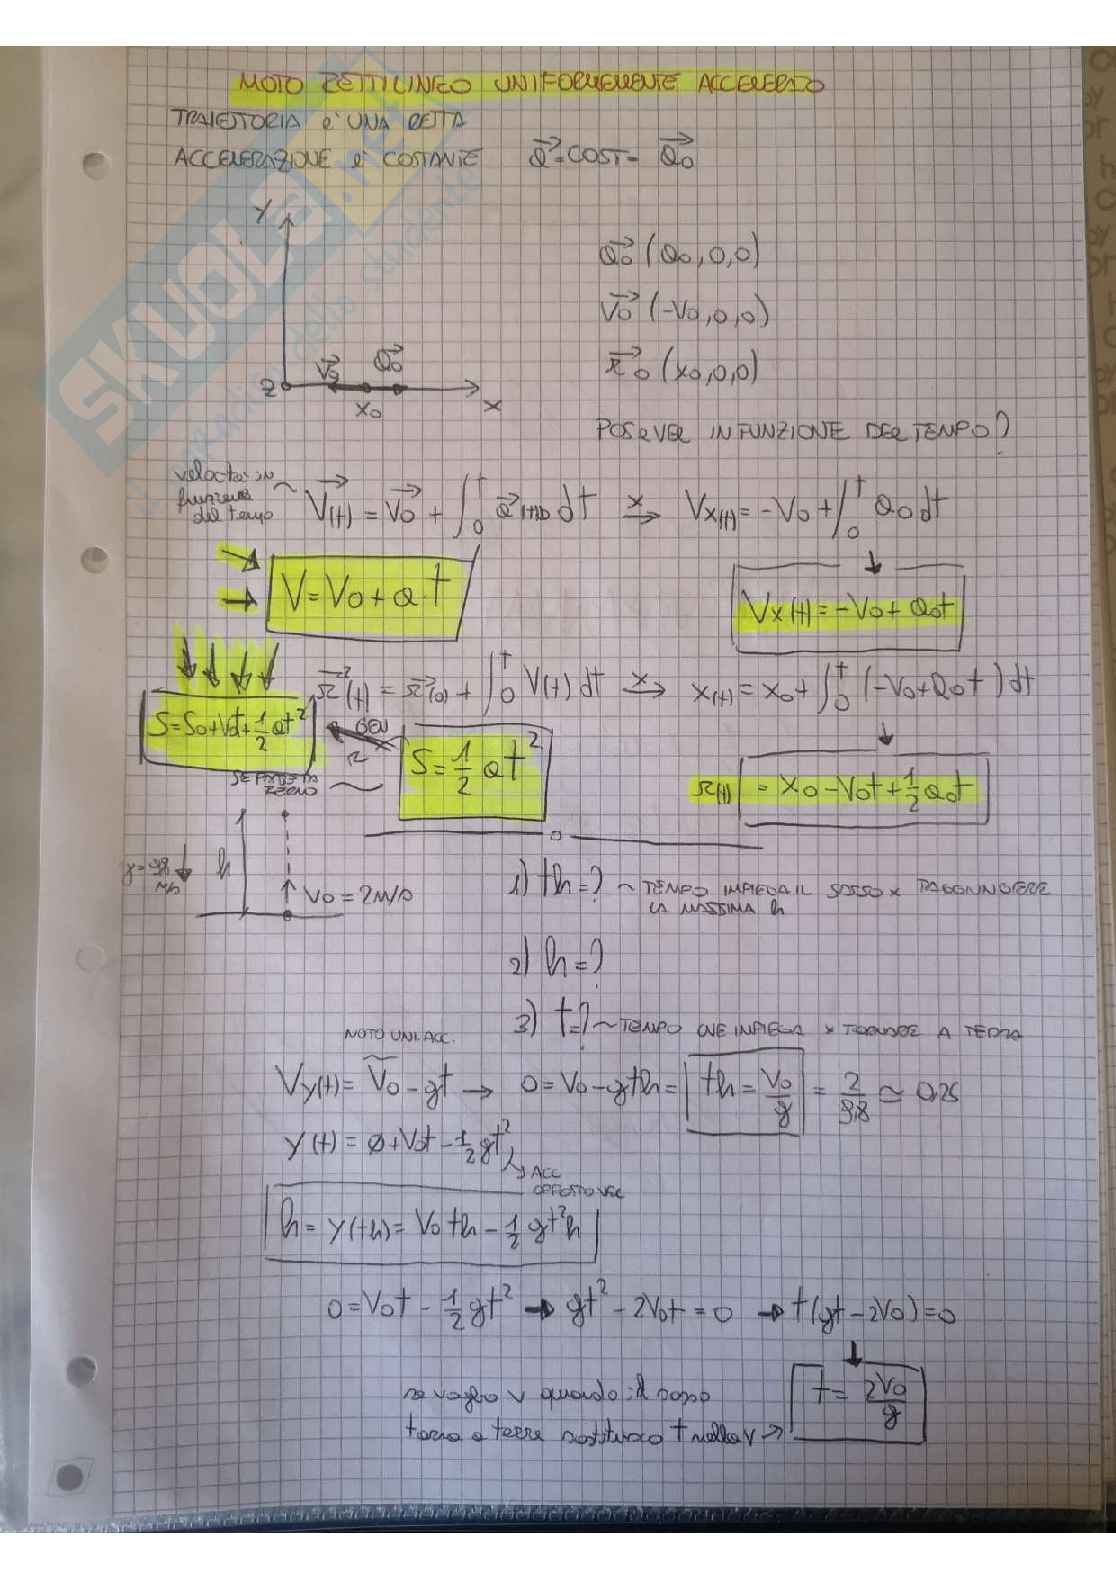 MOTO RETTILINEO UNIFORMEMENTE ACCELERATO
TRAIETTORIA e' UNA RETTA
ACCELERAZIONE e' COSTANTE a⃗=COST= a⃗0
SKUOLA.net
Y
a⃗0 (a0,0,0)
v⃗0 (-v0,0,0)
r⃗0 (x0,0,0)
V⃗0 a⃗0
Z X0 X
POS e VEL IN FUNZIONE DEL TEMPO?
velocità in funzione del tempo ~ V⃗(t) = V⃗0 + ∫0^t a⃗(t) dt →x Vx(t) = -V0 + ∫0^t a0 dt
V = V0 + a t
Vx(t) = -V0 + a0t
r⃗(t) = r⃗(0) + ∫0^t V(t) dt →x x(t) = x0 + ∫0^t (-V0+a0t) dt
S=S0+V0t+1/2 at²
S = 1/2 at²
r(t) = x0 - V0t + 1/2 a0t
g=9,8 m/s
h
V0 = 2m/s
1) th = ? ~ TEMPO IMPIEGA IL SASSO x RAGGIUNGERE
LA MASSIMA h
2) h = ?
3) t = ? ~ TEMPO CHE IMPIEGA x TORNARE A TERRA
MOTO UNI. ACC.
Vy(t) = V0 - gt → 0 = V0 - gth = th = V0/g = 2/9,8 ≃ 0,2s
y(t) = ø + V0t - 1/2 gt²
ACC
OPPOSTO VEL
h = y(th) = V0 th - 1/2 gt²h
0 = V0t - 1/2 gt² → gt² - 2V0t = 0 → t(gt - 2V0) = 0
se voglio v quando il sasso
torna a terra sostituisco t nella v →
t = 2V0/g